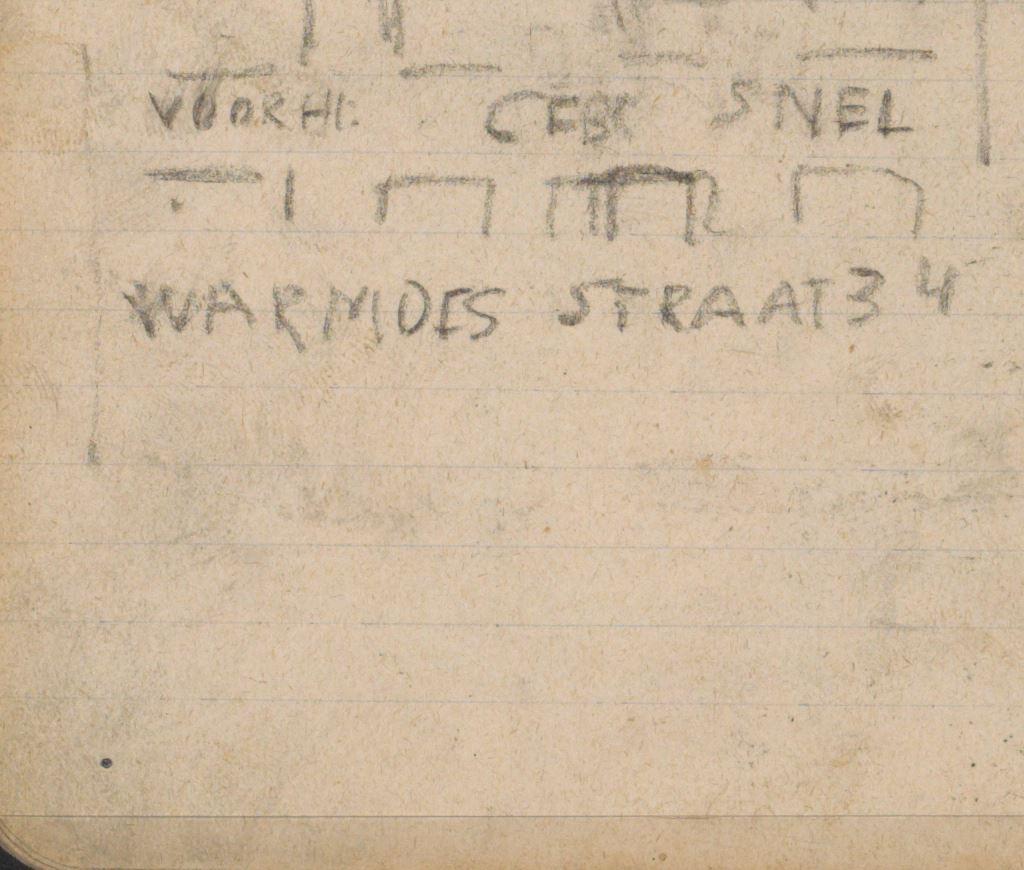 VOORH: GEBR SNEL
WARMOES STRAAT 34